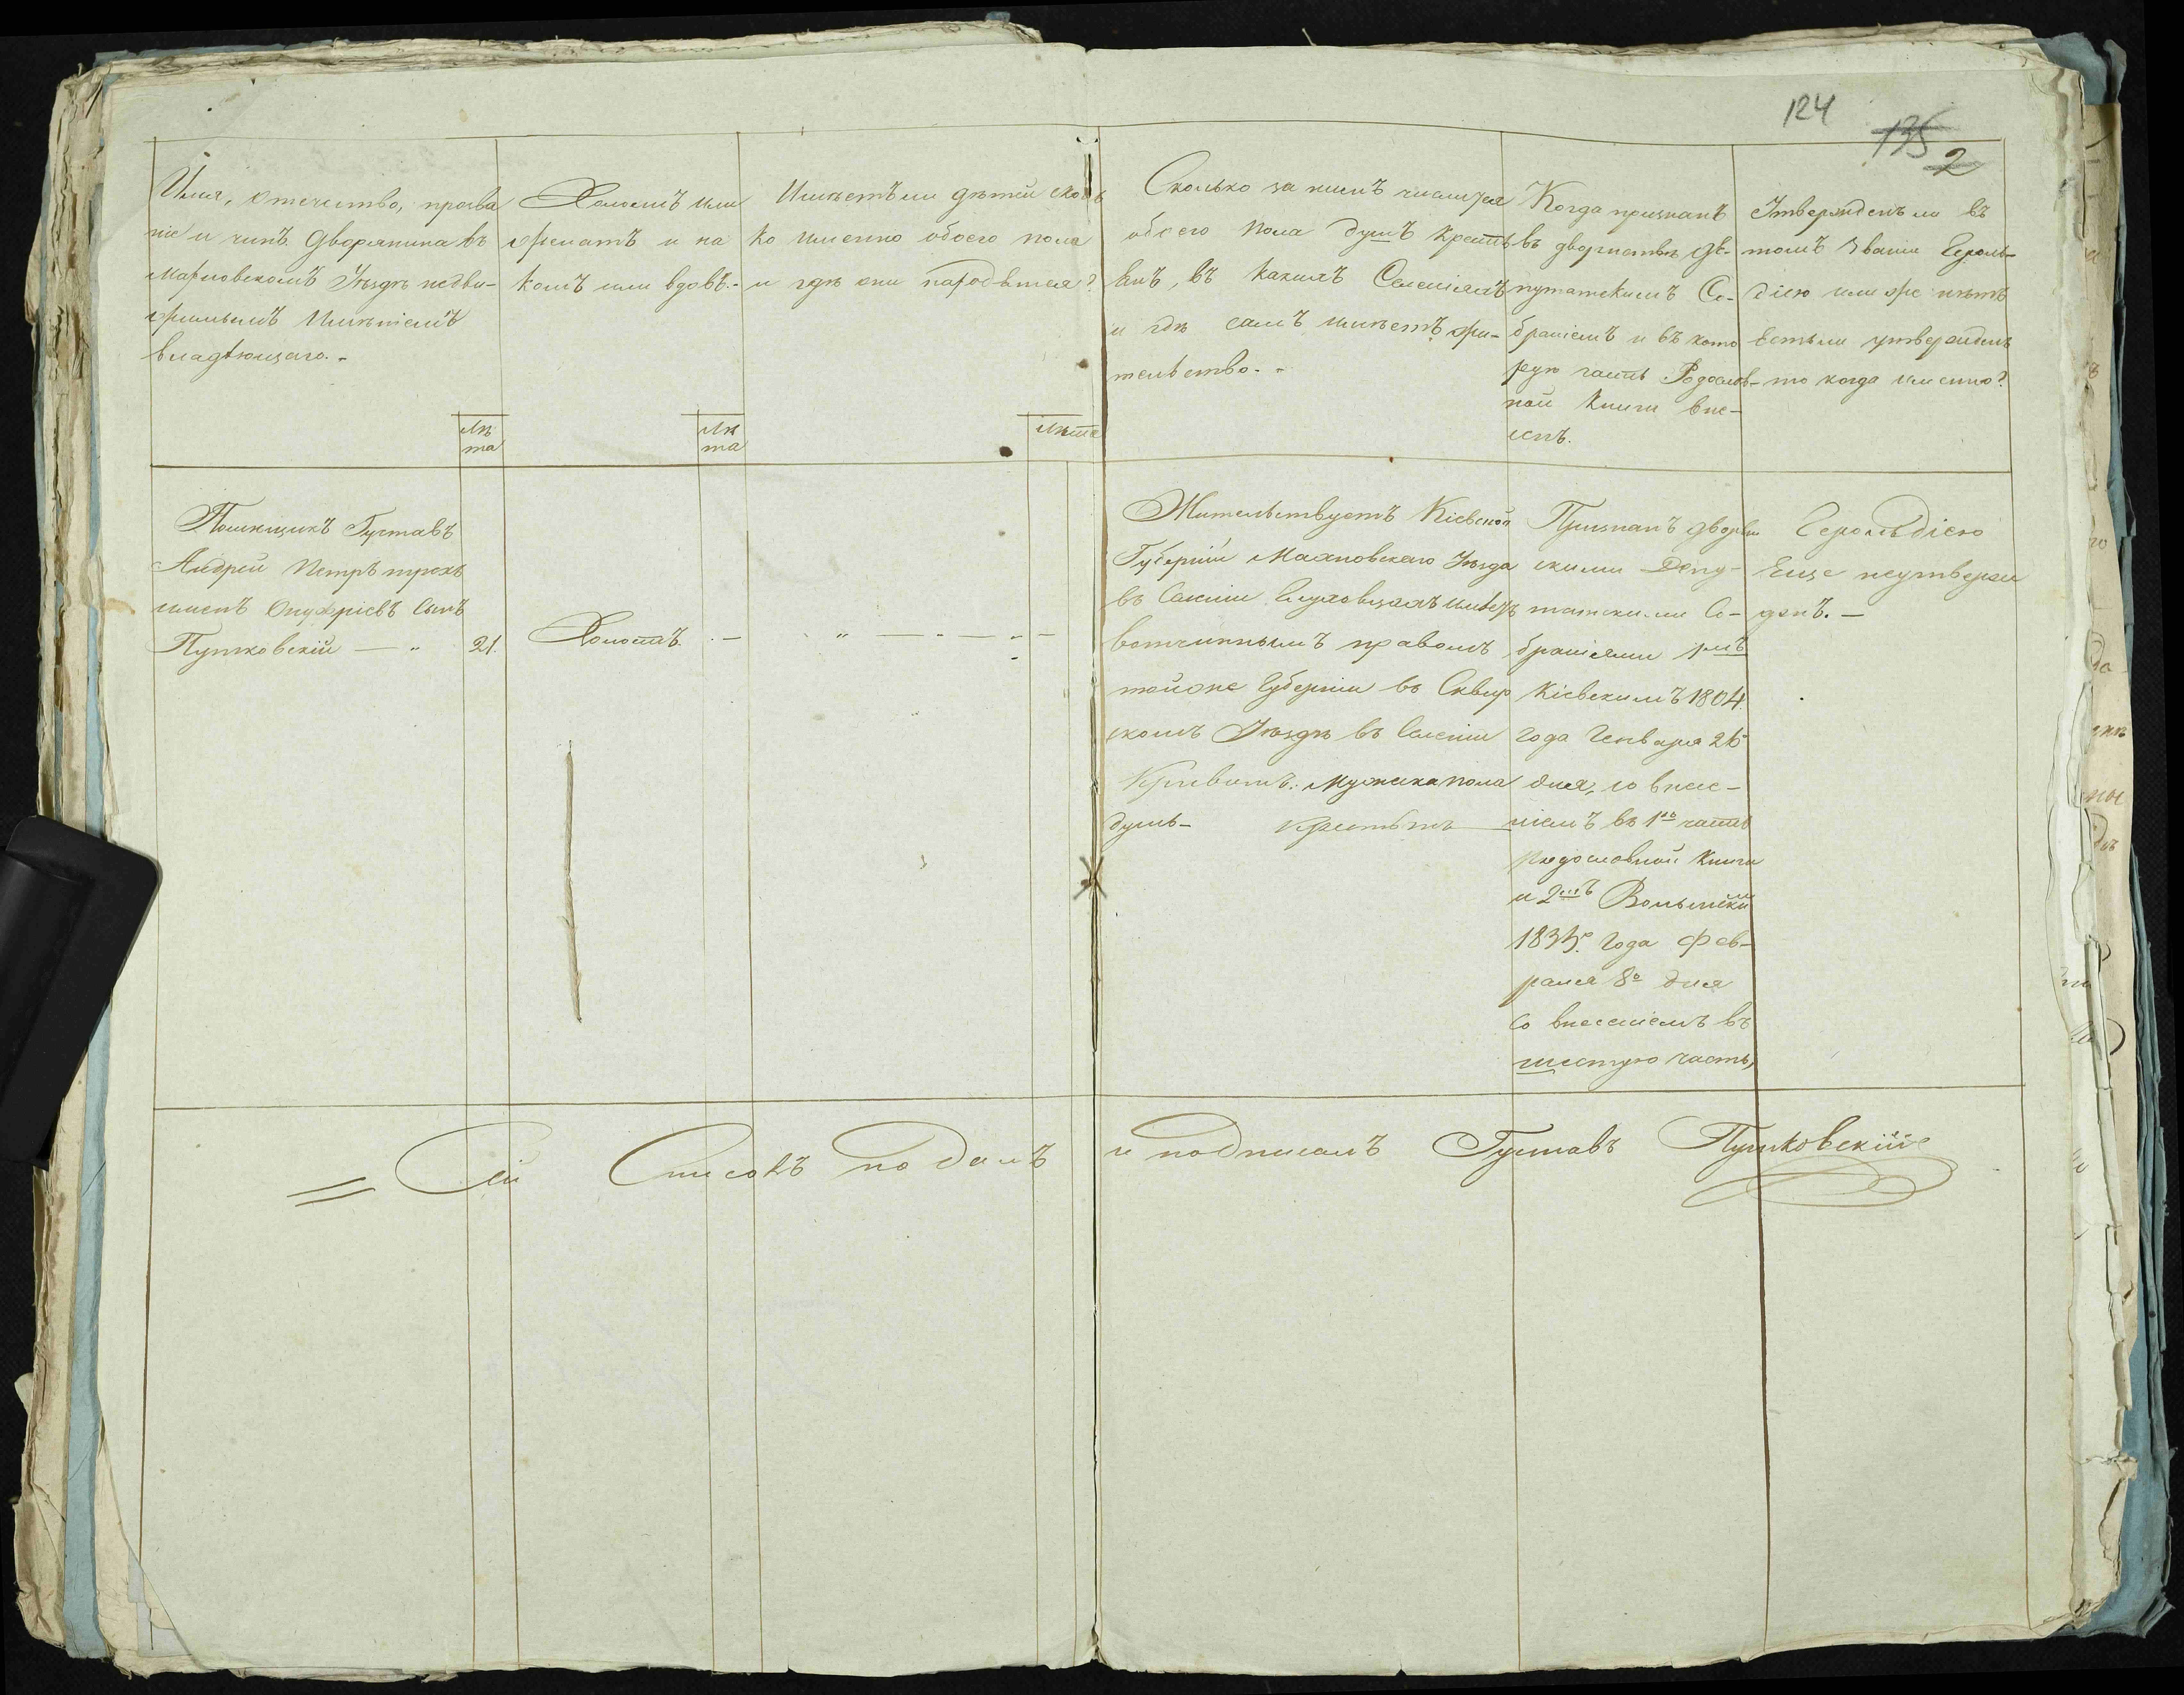 124
135
2
Имя, отечество, прозва
ніе и чинъ Дворянина въ
Махновскомъ Уѣздѣ недви-
жимымъ Имѣніемъ
владѣющаго.-
Лѣ
та
Холостъ или
женатъ и на
комъ или вдовъ.-
Лѣ
та
Имѣетъ ли дѣтей сколь
ко именно обоего пола
и гдѣ они находятся?
Лѣта
Сколько за нимъ числится
обоего пола душъ крестъ
янъ, въ какихъ Селеніяхъ
и гдѣ самъ имѣетъ жи-
тельство.-
Когда признанъ
въ дворянствѣ Де-
путатскимъ Со-
браніемъ и въ кото
рую часть Родослов-
ной Книги вне-
сенъ.
Утвержденъ ли въ
томъ Званіи Героль-
діею или же нѣтъ
Естьли утвержденъ
то когда именно?
Помѣщикъ Густавъ
Андрей Петръ трохъ
именъ Онуфріевъ Сынъ
21.
Холостъ.
Жительствуетъ Кіевской
Губерніи Махновскаго Уѣзда
въ Селеніи
вотчиннымъ правомъ
тойже Губерніи въ Сквир
скомъ Уѣздѣ въ Селеніи
мужеска пола
душъ-
Признанъ дворян
скими Депу-
татскими Со-
браніями 1мъ
Кіевскимъ 1804
года Генваря 26
дня, со внесе-
ніемъ въ 1ю часть
родословной Книги
и 2мъ Волынским
года Фев-
раля 8о дня
со внесеніемъ въ
шестую часть,
Герольдіею
Еще неутверж
денъ.-
Сей Списокъ подалъ и подписалъ Густавъ